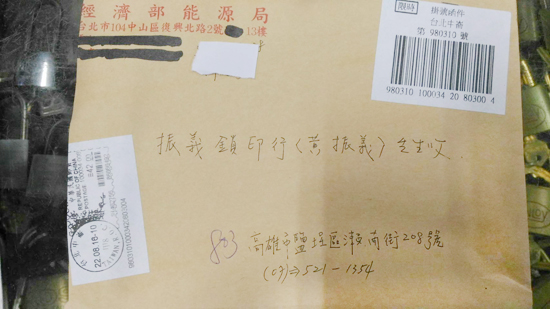 經濟部能源局
台北市104中山區復興北路2號 13樓
限時
掛號函件
台北牛埔
第 980310 號
980310 100034 20 80300 4
振義鎖印行(黃振義)先生收
REPUBLIC OF CHINA
POSTAGE
22.08.16-10
98031010003420803004
803 高雄市鹽埕區瀨南街208號
(07)⇒521-1354